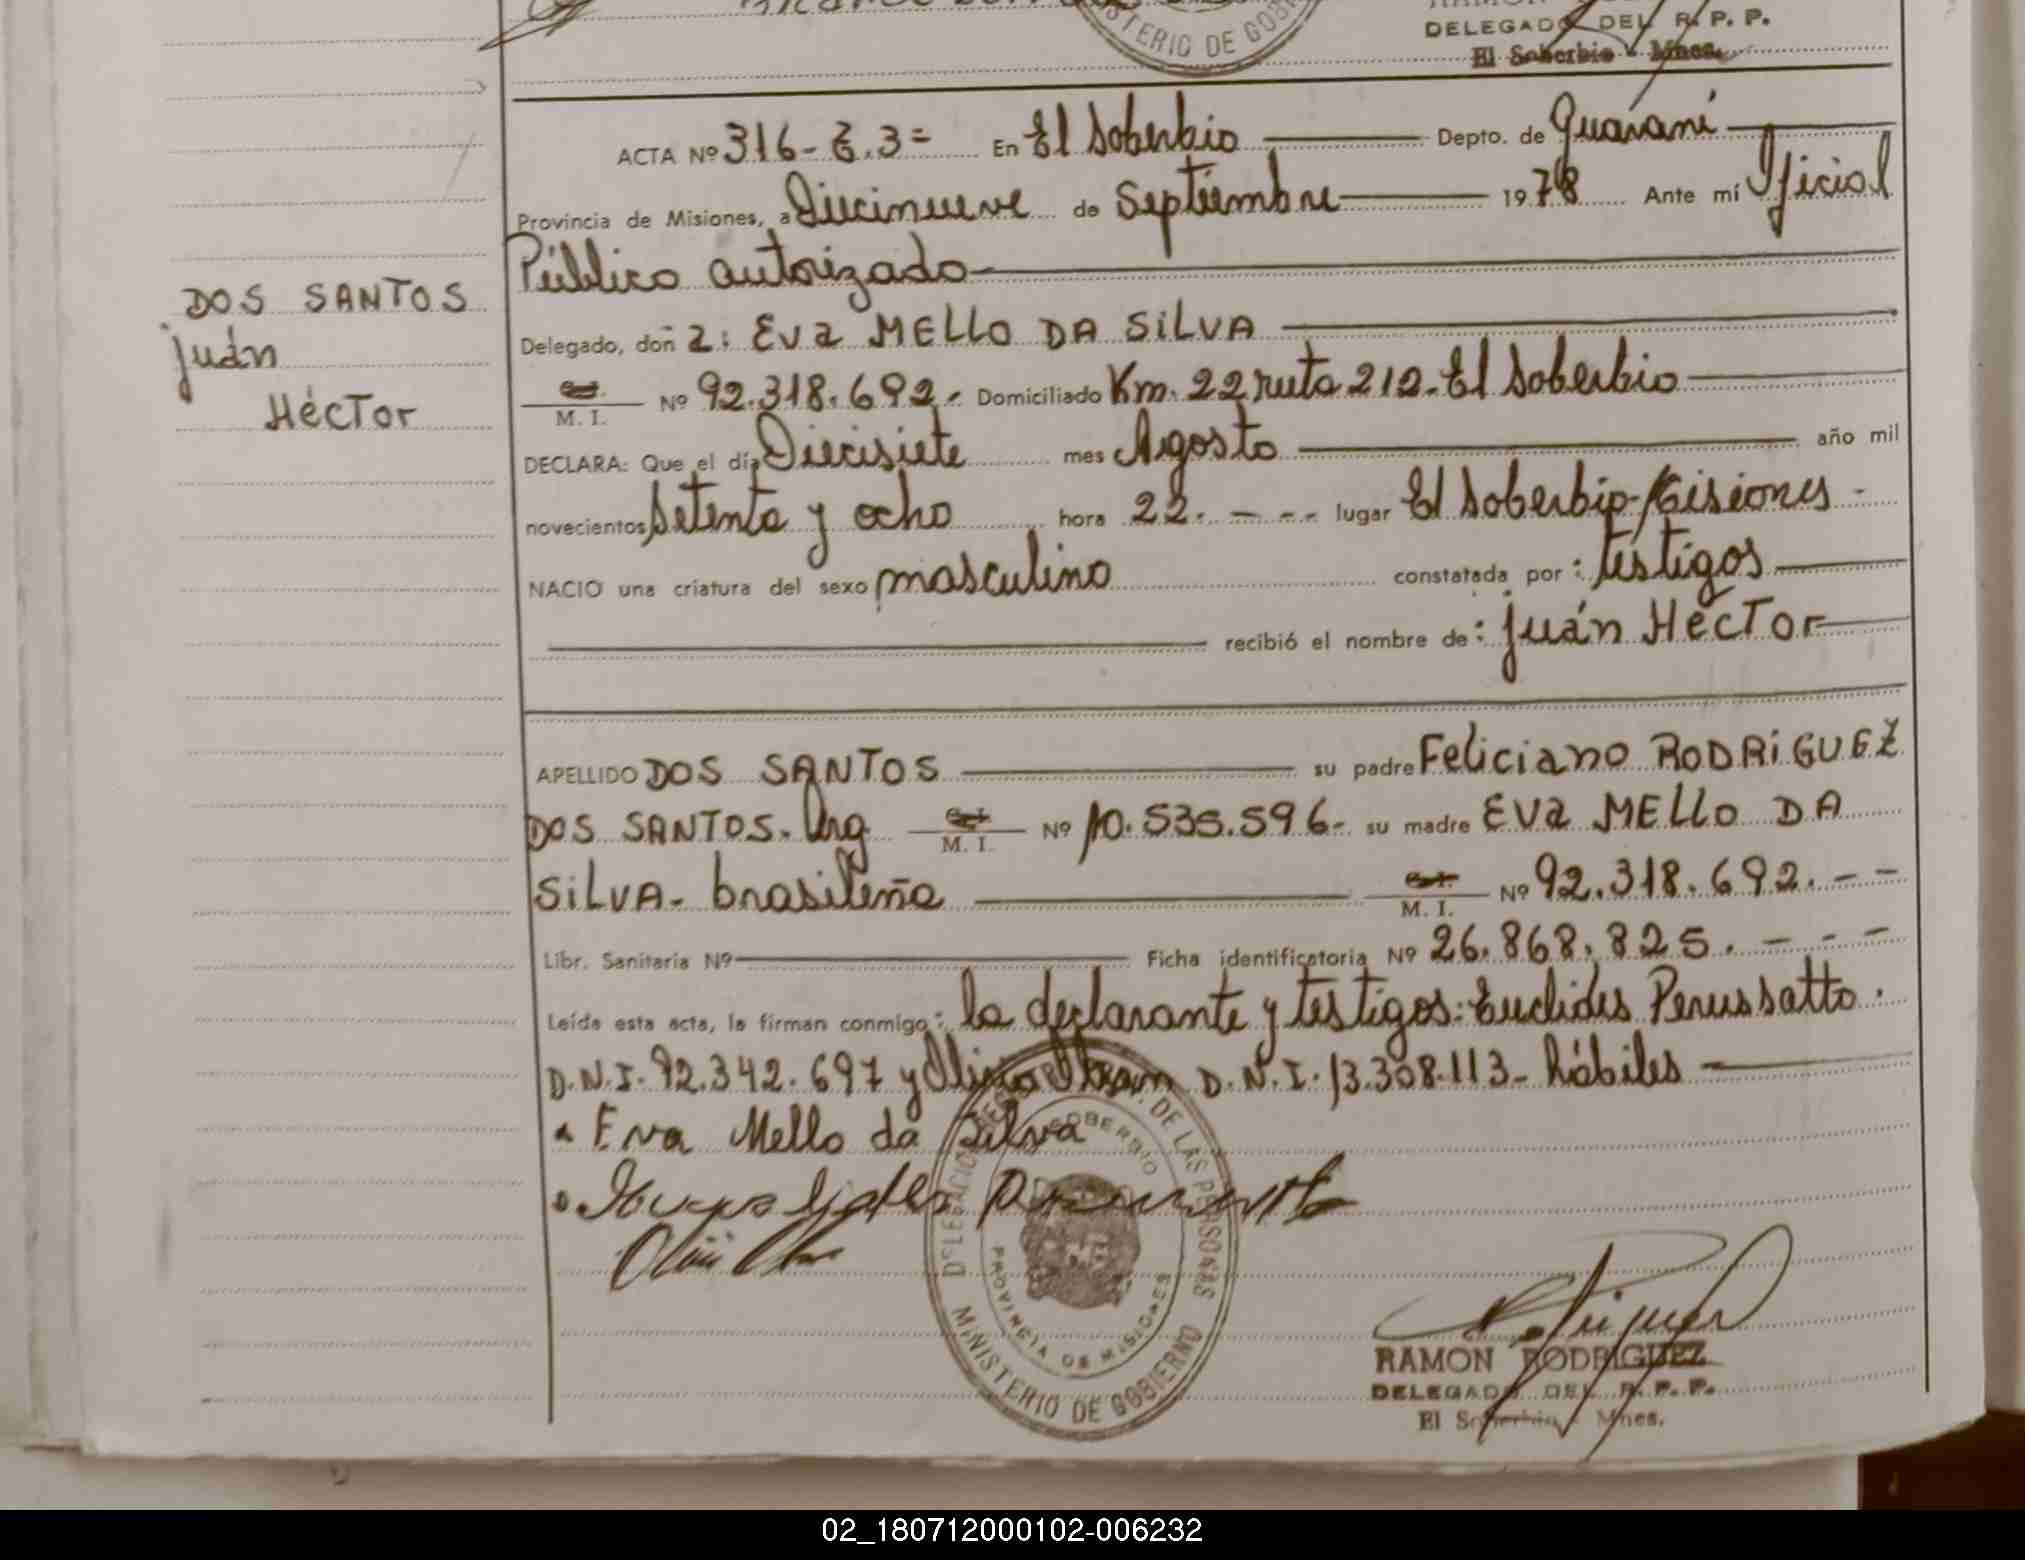 MINISTERIO DE GOBI
DELEGADO DEL R. P. P.
El Soberbio - Mnes.
ACTA Nº 316- 3= En El Soberbio Depto. de Guaraní
Provincia de Misiones, a Diecinueve de Septiembre 1978 Ante mí Oficial
Público autorizado
DOS SANTOS
Juán
Héctor
Delegado, don a: Eva MELLO DA SILVA
M. I. Nº 92.318.692.- Domiciliado Km. 22 ruta 212- El Soberbio
DECLARA: Que el día Diecisiete mes Agosto año mil
novecientos Setenta y ocho hora 22.- - - lugar El Soberbio-Misiones -
NACIO una criatura del sexo masculino constatada por: testigos
recibió el nombre de: Juán Héctor
APELLIDO DOS SANTOS su padre Feliciano RODRIGUEZ
DOS SANTOS. Arg. M. I. Nº 10.535.596- su madre Eva MELLO DA
SILVA- brasileña M. I. Nº 92.318.692.- -
Libr. Sanitaria Nº Ficha identificatoria Nº 26.868.825.- - -
Leída esta acta, la firman conmigo: la declarante y testigos: Euclides Perussatto.
D.N.I. 92.342.697 y D.N.I. 13.308.113- hábiles
Eva Mello da Silva
DELEGACION DE LAS PERSONAS
SOBERBIO
PROVINCIA DE MISIONES
MINISTERIO DE GOBIERNO
RAMON RODRIGUEZ
DELEGADO DEL R. P. P.
El Soberbio - Mnes.
02_180712000102-006232